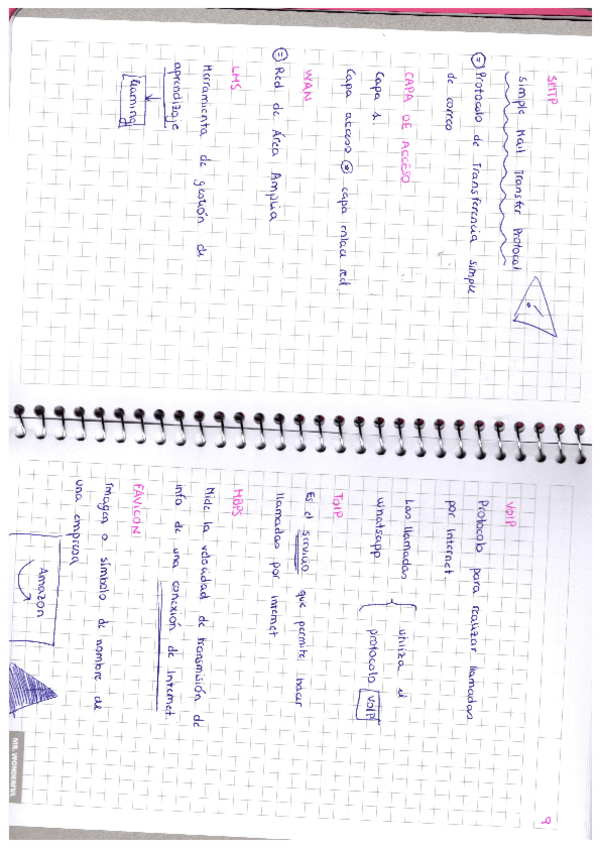 SMTP
Simple Mail Transfer Protocol
= Protocolo de Transferencia Simple
de correo
CAPA DE ACCESO
Capa 1
Capa acceso = capa enlace red.
WAN
= Red de Área Amplia
LMS
Herramienta de gestión de
aprendizaje
learning
9
VOIP
Protocolo para realizar llamadas
por Internet.
Las llamadas utiliza el
whatsapp protocolo VoIP
TOIP
Es el servicio que permite hacer
llamadas por internet
MBPS
Mide la velocidad de transmisión de
info de una conexión de internet.
FAVICON
Imagen o símbolo de nombre de
una empresa
Amazon
MR. WONDERFUL